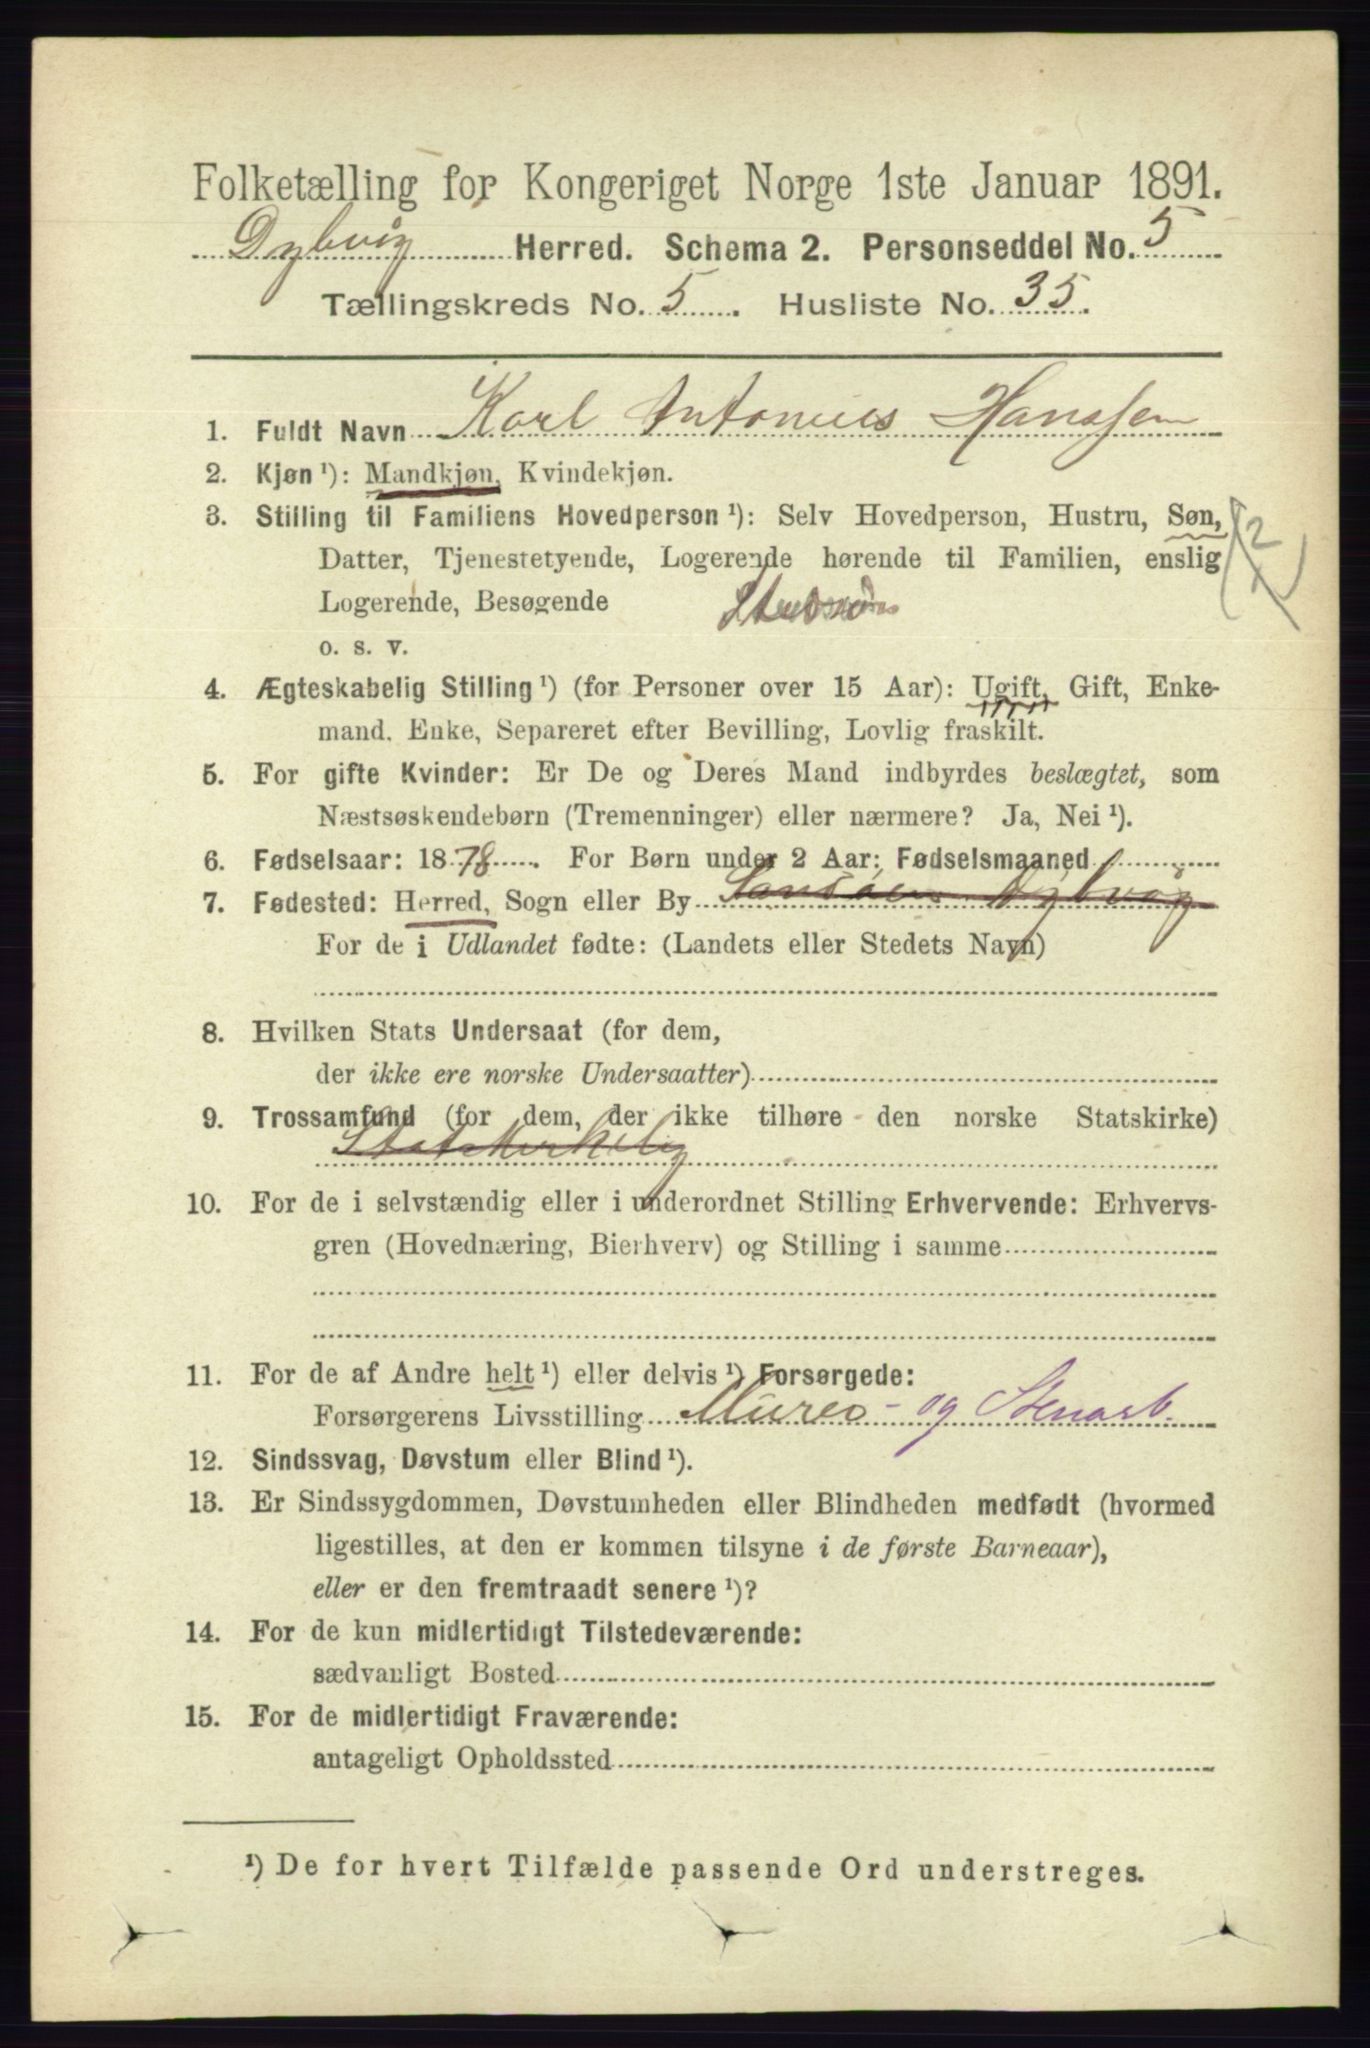 Folketælling for Kongeriget Norge 1ste Januar 1891.
Dybvåg Herred. Schema 2. Personseddel No. 5
Tællingskreds No. 5. Husliste No. 35.
1. Fuldt Navn Karl Antonius Hanssen
2. Kjøn ¹): Mandkjøn, Kvindekjøn.
3. Stilling til Familiens Hovedperson ¹): Selv Hovedperson, Hustru, Søn,
Datter, Tjenestetyende, Logerende hørende til Familien, enslig
Logerende, Besøgende Stedsøn
o. s. v.
4. Ægteskabelig Stilling ¹) (for Personer over 15 Aar): Ugift, Gift, Enke-
mand, Enke, Separeret efter Bevilling, Lovlig fraskilt.
5. For gifte Kvinder: Er De og Deres Mand indbyrdes beslægtet, som
Næstsøskendebørn (Tremenninger) eller nærmere? Ja, Nei ¹).
6. Fødselsaar: 1878. For Børn under 2 Aar: Fødselsmaaned
7. Fødested: Herred, Sogn eller By Dybvåg
For de i Udlandet fødte: (Landets eller Stedets Navn)
8. Hvilken Stats Undersaat (for dem,
der ikke ere norske Undersaatter)
9. Trossamfund (for dem, der ikke tilhøre den norske Statskirke)
Statskirkelig
10. For de i selvstændig eller i underordnet Stilling Erhvervende: Erhvervs-
gren (Hovednæring, Bierhverv) og Stilling i samme
11. For de af Andre helt ¹) eller delvis ¹) Forsørgede:
Forsørgerens Livsstilling Murer- og Stenarb.
12. Sindssvag, Døvstum eller Blind ¹).
13. Er Sindssygdommen, Døvstumheden eller Blindheden medfødt (hvormed
ligestilles, at den er kommen tilsyne i de første Barneaar),
eller er den fremtraadt senere ¹)?
14. For de kun midlertidigt Tilstedeværende:
sædvanligt Bosted
15. For de midlertidigt Fraværende:
antageligt Opholdssted
¹) De for hvert Tilfælde passende Ord understreges.